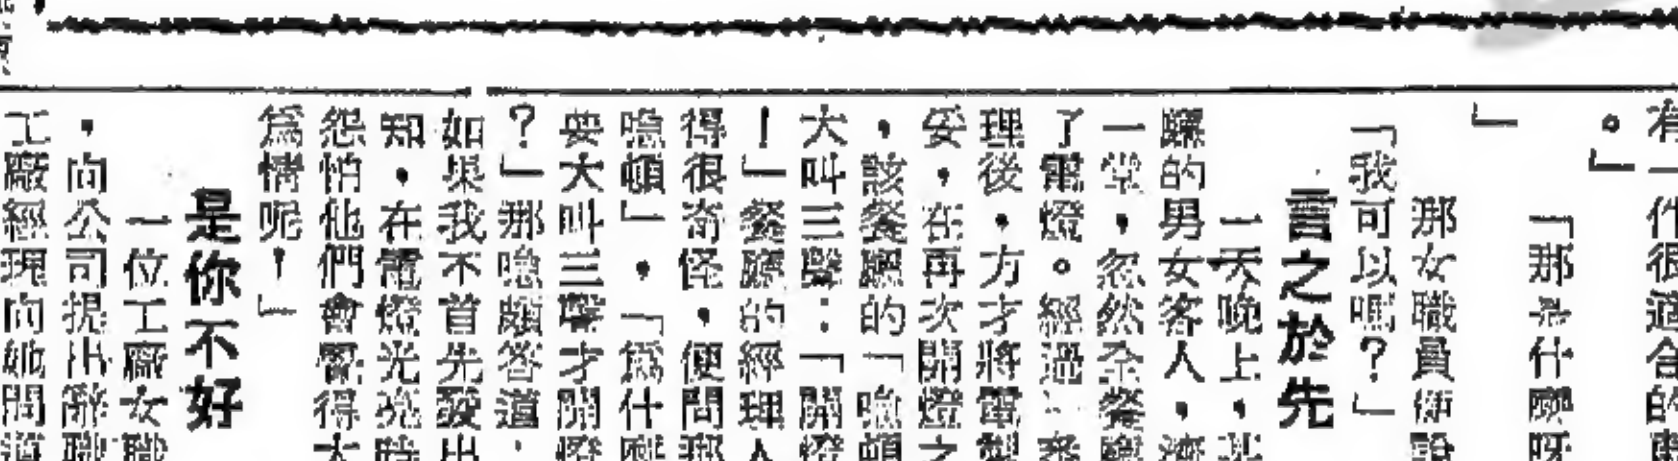 有一件很適合的
。」
「那是什麼呀
」
那女職員便說
「我可以嗎？」
言之於先
一天晚上，某
廳的男女客人，濟
一堂，忽然全餐廳
了電燈。經過
理後，方才將電掣
妥，在再次開燈之
，該餐廳的「嗆頓
大叫三聲：「開燈
！」餐廳的經理人
得很奇怪，便問那
嗆頓」，「為什麼
要大叫三聲才開燈
？」那嗆頗答道：
如果我不首先發出
知，在電燈光亮時
怨怕他們會覺得大
為情呢！」
是你不好
一位工廠女職
，向公司提出辭職
工廠經理向她問道